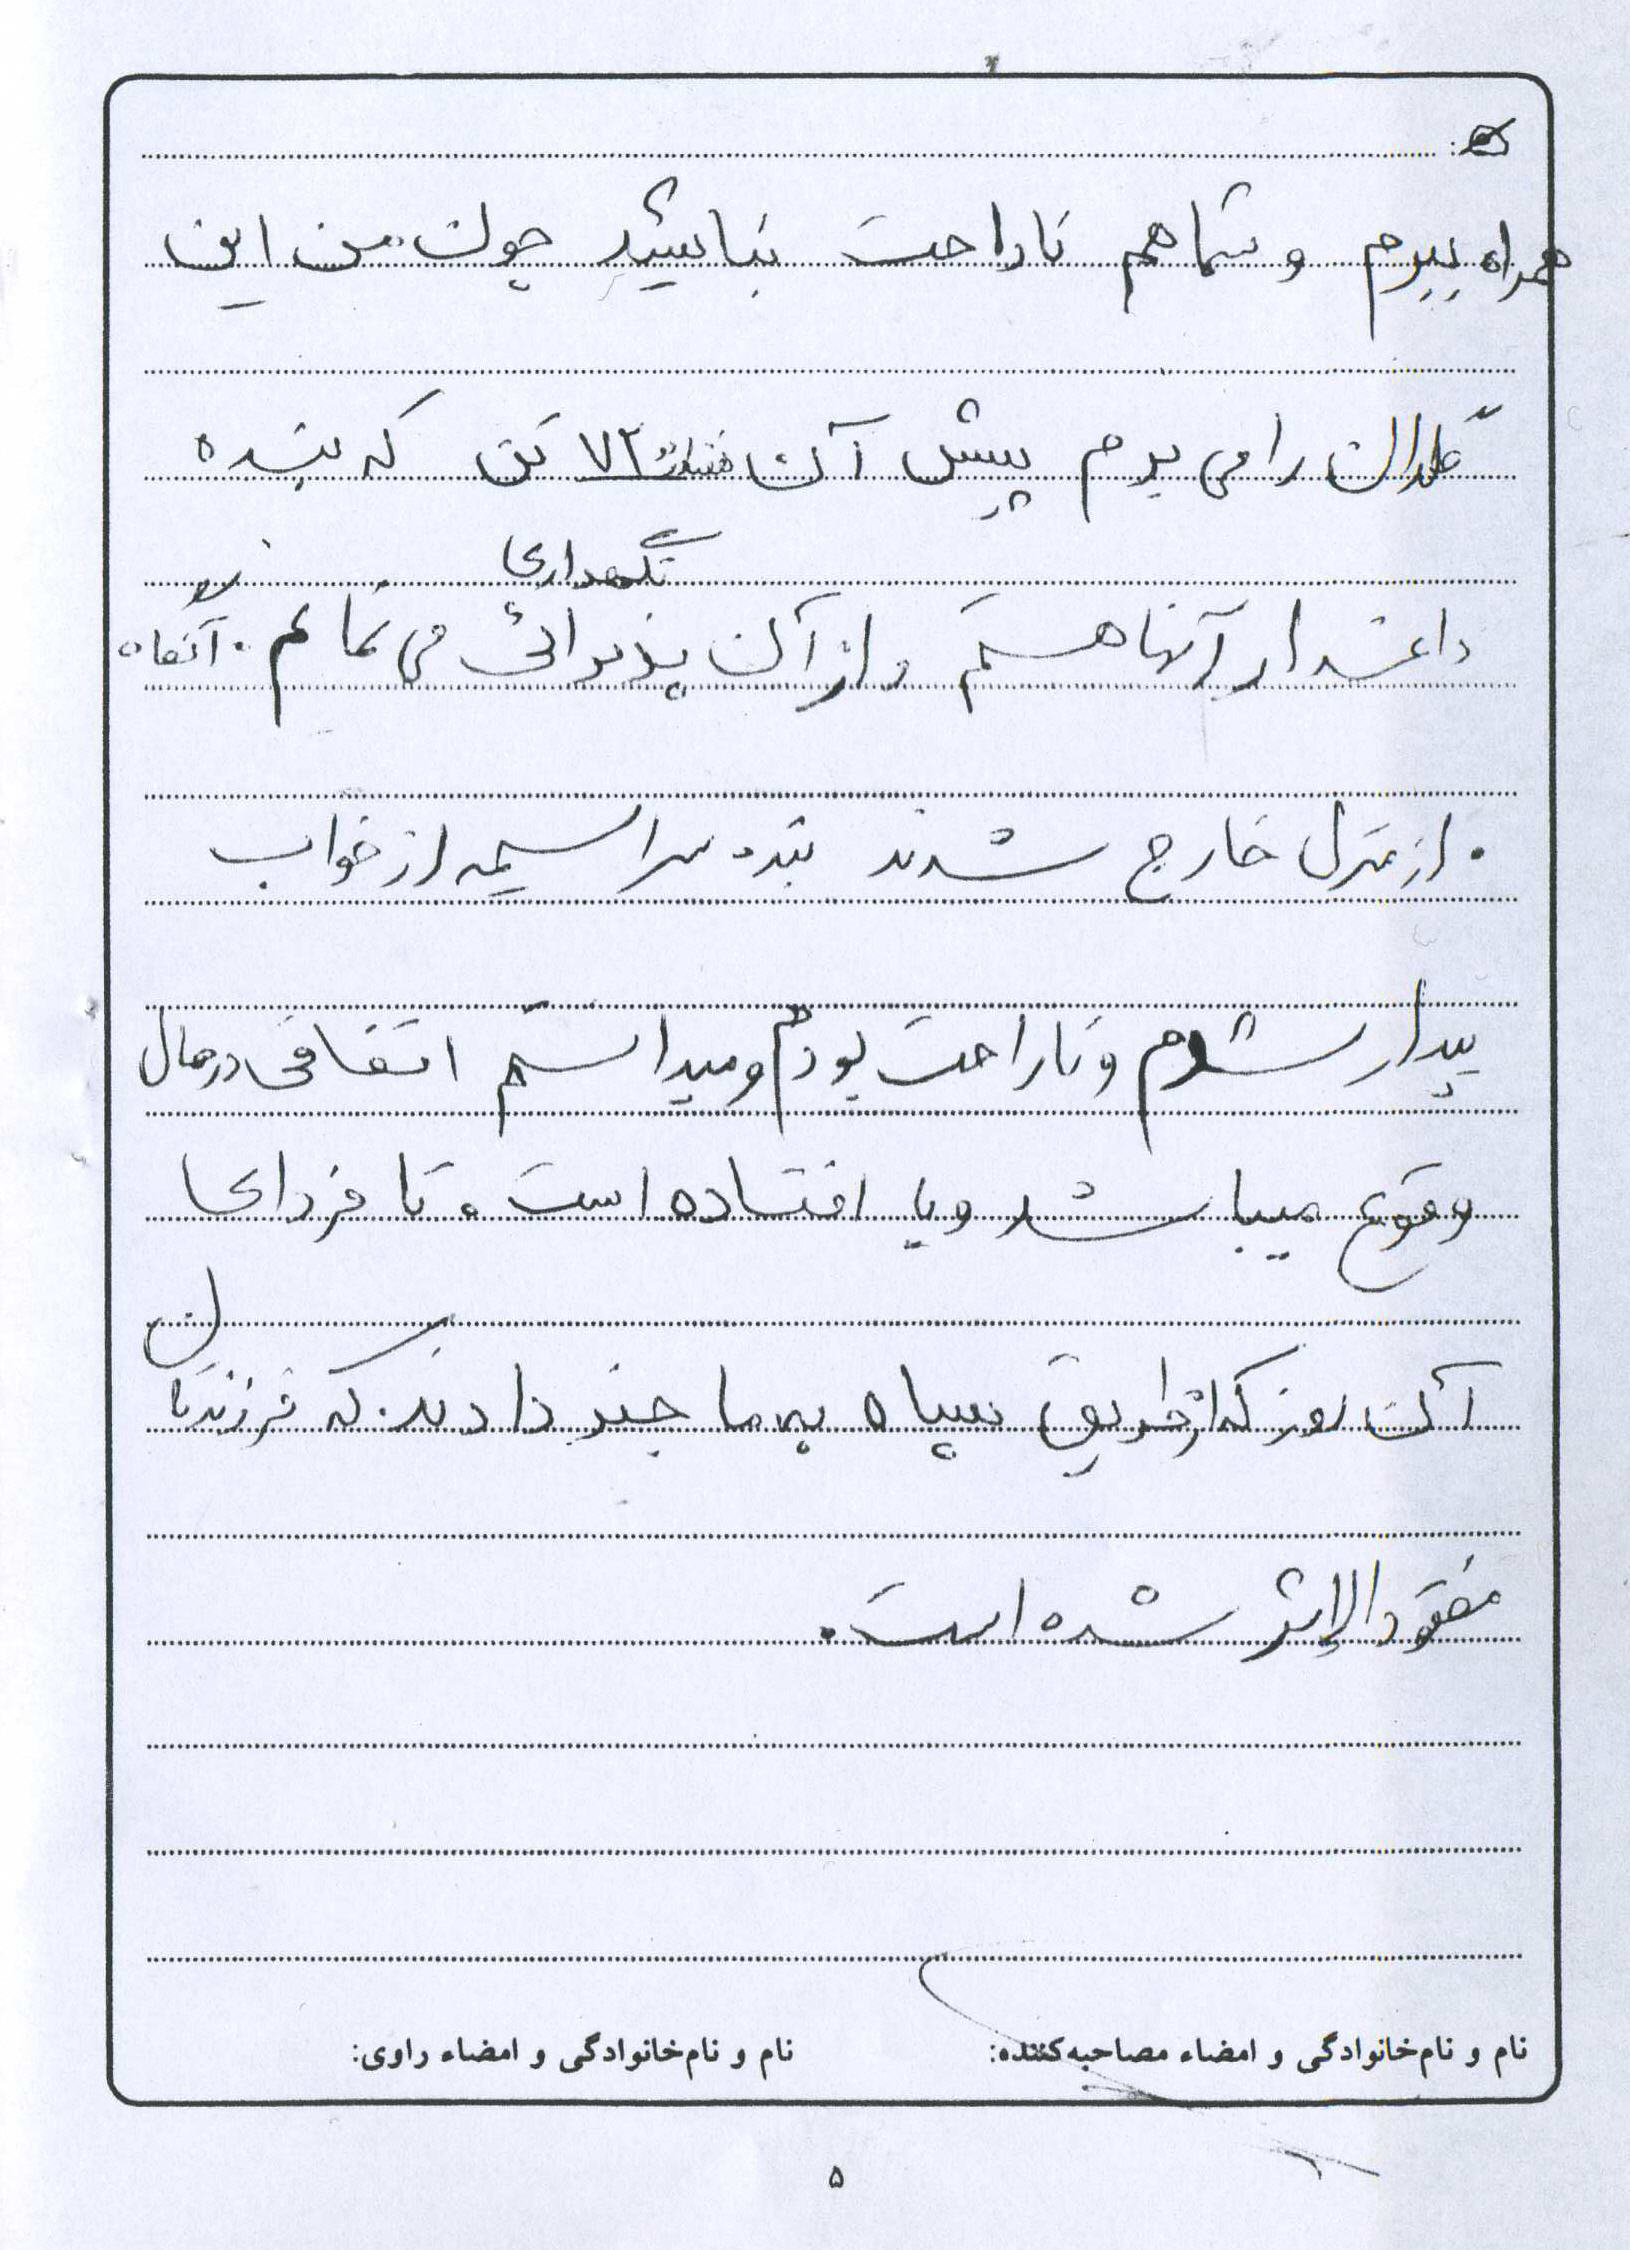 همراه ببرم و شما هم ناراحت نباشید چون من این
گلدان را می برم پیش آن ۷۲ تن که بنده
نگهداری
داغدار آنها هستم و از آن پذیرائی می نمایم . آنگاه
. از منزل خارج شدند بنده سراسیمه از خواب
بیدار شدم و ناراحت بودم و میدانستم اتفاقی در حال
وقوع میباشد و یا افتاده است . تا فردای
آن روز که از طریق سپاه به ما خبر دادند . که فرزندتان
مفقودالاثر شده است .
نام و نام‌خانوادگی و امضاء مصاحبه‌کننده: نام و نام‌خانوادگی و امضاء راوی:
۵